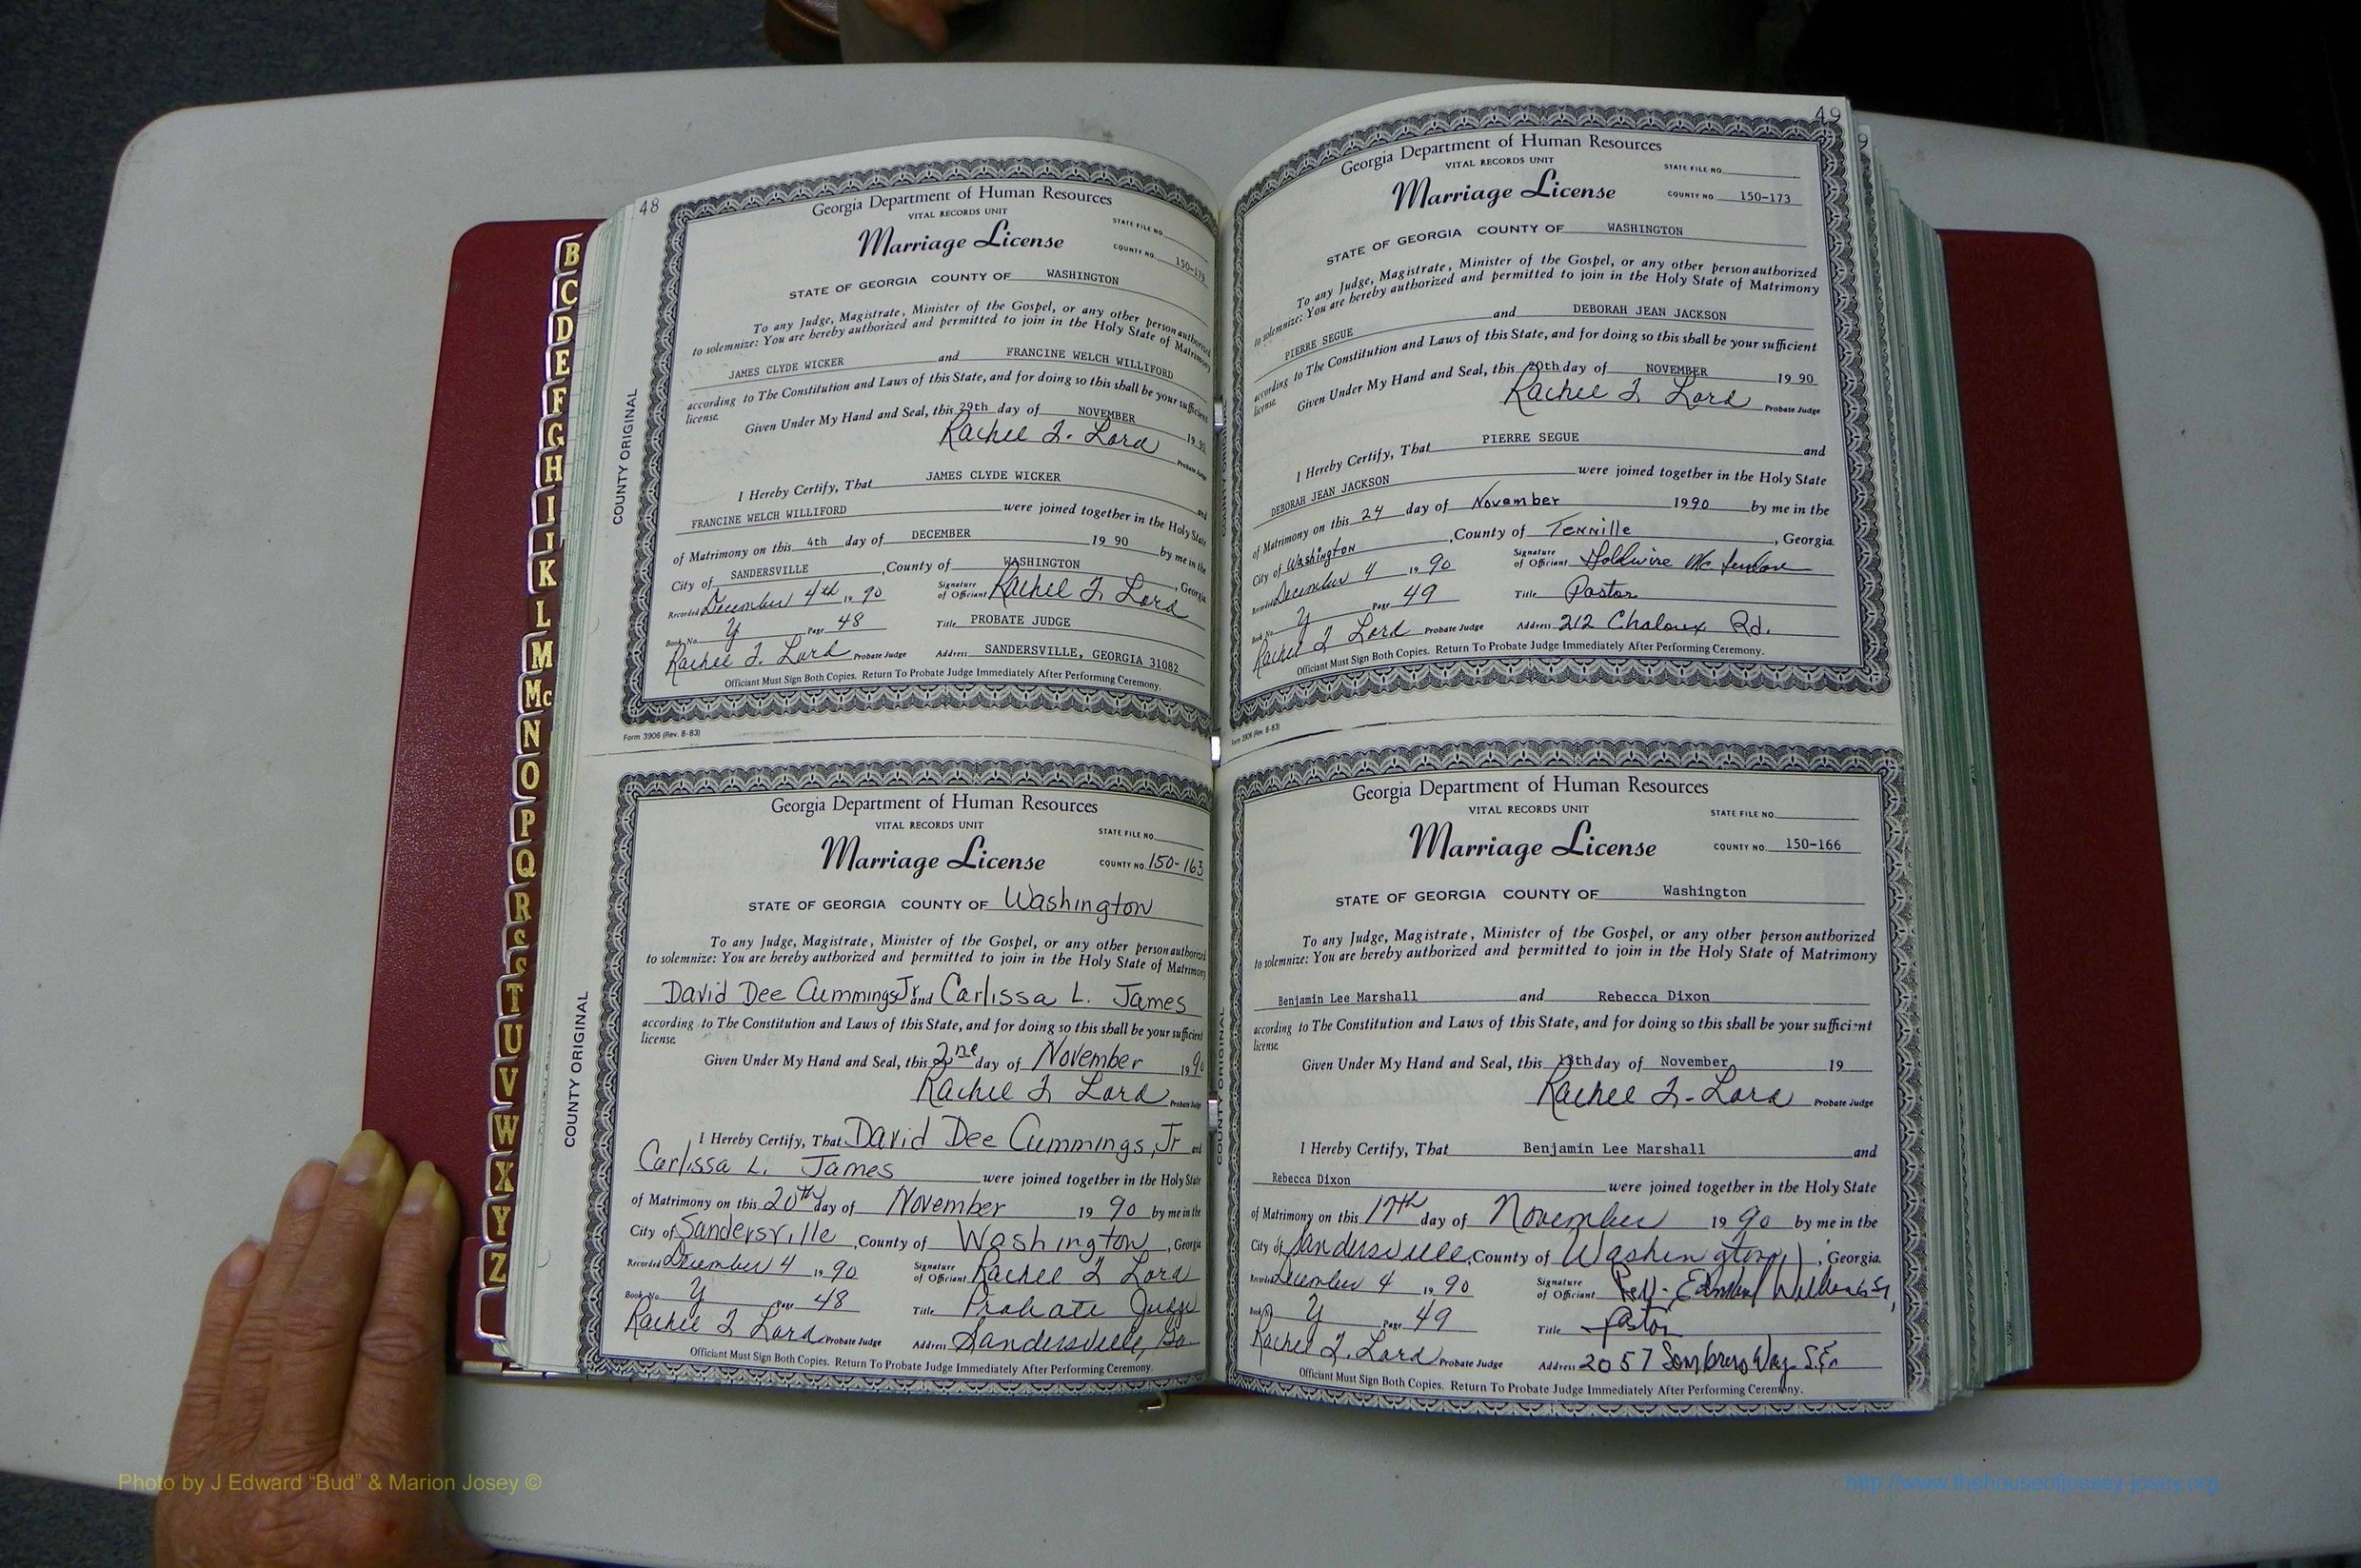 48
Georgia Department of Human Resources
VITAL RECORDS UNIT
STATE FILE NO.
Marriage License
COUNTY NO.
STATE OF GEORGIA COUNTY OF WASHINGTON
To any Judge, Magistrate, Minister of the Gospel, or any other person authorized
to solemnize: You are hereby authorized and permitted to join in the Holy State of Matrimony
JAMES CLYDE WICKER and FRANCINE WELCH WILLIFORD
according to The Constitution and Laws of this State, and for doing so this shall be your sufficient
license.
Given Under My Hand and Seal, this 29th day of NOVEMBER 19 90
Rachel L. Lord Probate Judge
I Hereby Certify, That JAMES CLYDE WICKER and
FRANCINE WELCH WILLIFORD were joined together in the Holy State
of Matrimony on this 4th day of DECEMBER 19 90 by me in the
City of SANDERSVILLE, County of WASHINGTON, Georgia
Recorded December 4th, 19 90 Signature of Officiant Rachel L. Lord
Book No. Y Page 48 Title PROBATE JUDGE
Rachel L. Lord Probate Judge Address SANDERSVILLE, GEORGIA 31082
Officiant Must Sign Both Copies. Return To Probate Judge Immediately After Performing Ceremony.
Form 3906 (Rev. 8-83)
COUNTY ORIGINAL
Georgia Department of Human Resources
VITAL RECORDS UNIT
STATE FILE NO.
Marriage License
COUNTY NO. 150-163
STATE OF GEORGIA COUNTY OF Washington
To any Judge, Magistrate, Minister of the Gospel, or any other person authorized
to solemnize: You are hereby authorized and permitted to join in the Holy State of Matrimony
David Dee Cummings Jr and Carlissa L. James
according to The Constitution and Laws of this State, and for doing so this shall be your sufficient
license.
Given Under My Hand and Seal, this 2nd day of November 19 90
Rachel L. Lord Probate Judge
I Hereby Certify, That David Dee Cummings, Jr and
Carlissa L. James were joined together in the Holy State
of Matrimony on this 20th day of November 19 90 by me in the
City of Sandersville, County of Washington, Georgia
Recorded December 4 19 90 Signature of Officiant Rachel L Lord
Book No. Y Page 48 Title Probate Judge
Rachel L Lord Probate Judge Address Sandersville, Ga
Officiant Must Sign Both Copies. Return To Probate Judge Immediately After Performing Ceremony.
COUNTY ORIGINAL
49
Georgia Department of Human Resources
VITAL RECORDS UNIT
STATE FILE NO.
Marriage License
COUNTY NO. 150-173
STATE OF GEORGIA COUNTY OF WASHINGTON
To any Judge, Magistrate, Minister of the Gospel, or any other person authorized
to solemnize: You are hereby authorized and permitted to join in the Holy State of Matrimony
PIERRE SEGUE and DEBORAH JEAN JACKSON
according to The Constitution and Laws of this State, and for doing so this shall be your sufficient
license.
Given Under My Hand and Seal, this 20th day of NOVEMBER 19 90
Rachel L Lord Probate Judge
I Hereby Certify, That PIERRE SEGUE and
DEBORAH JEAN JACKSON were joined together in the Holy State
of Matrimony on this 24 day of November 1990 by me in the
City of Washington, County of Tennille, Georgia.
Recorded December 4 19 90 Signature of Officiant
Book No. Y Page 49 Title Pastor
Rachel L Lord Probate Judge Address 212 Rd.
Officiant Must Sign Both Copies. Return To Probate Judge Immediately After Performing Ceremony.
Form 3906 (Rev. 8-83)
Georgia Department of Human Resources
VITAL RECORDS UNIT
STATE FILE NO.
Marriage License
COUNTY NO. 150-166
STATE OF GEORGIA COUNTY OF Washington
To any Judge, Magistrate, Minister of the Gospel, or any other person authorized
to solemnize: You are hereby authorized and permitted to join in the Holy State of Matrimony
Benjamin Lee Marshall and Rebecca Dixon
according to The Constitution and Laws of this State, and for doing so this shall be your sufficient
license.
Given Under My Hand and Seal, this 13th day of November 19
Rachel L. Lord Probate Judge
I Hereby Certify, That Benjamin Lee Marshall and
Rebecca Dixon were joined together in the Holy State
of Matrimony on this 17th day of November 19 90 by me in the
City of Sandersville, County of Washington, Georgia.
Recorded December 4 19 90 Signature of Officiant
Book No. Y Page 49 Title Pastor
Rachel L. Lord Probate Judge Address 2057 Way S.E.
Officiant Must Sign Both Copies. Return To Probate Judge Immediately After Performing Ceremony.
COUNTY ORIGINAL
B
C
D
E
F
G
H
I
J
K
L
M
Mc
N
O
P
Q
R
S
S
T
U
V
W
X
Y
Z
Photo by J Edward "Bud" & Marion Josey ©
http://www.thehouseofjossey-josey.org